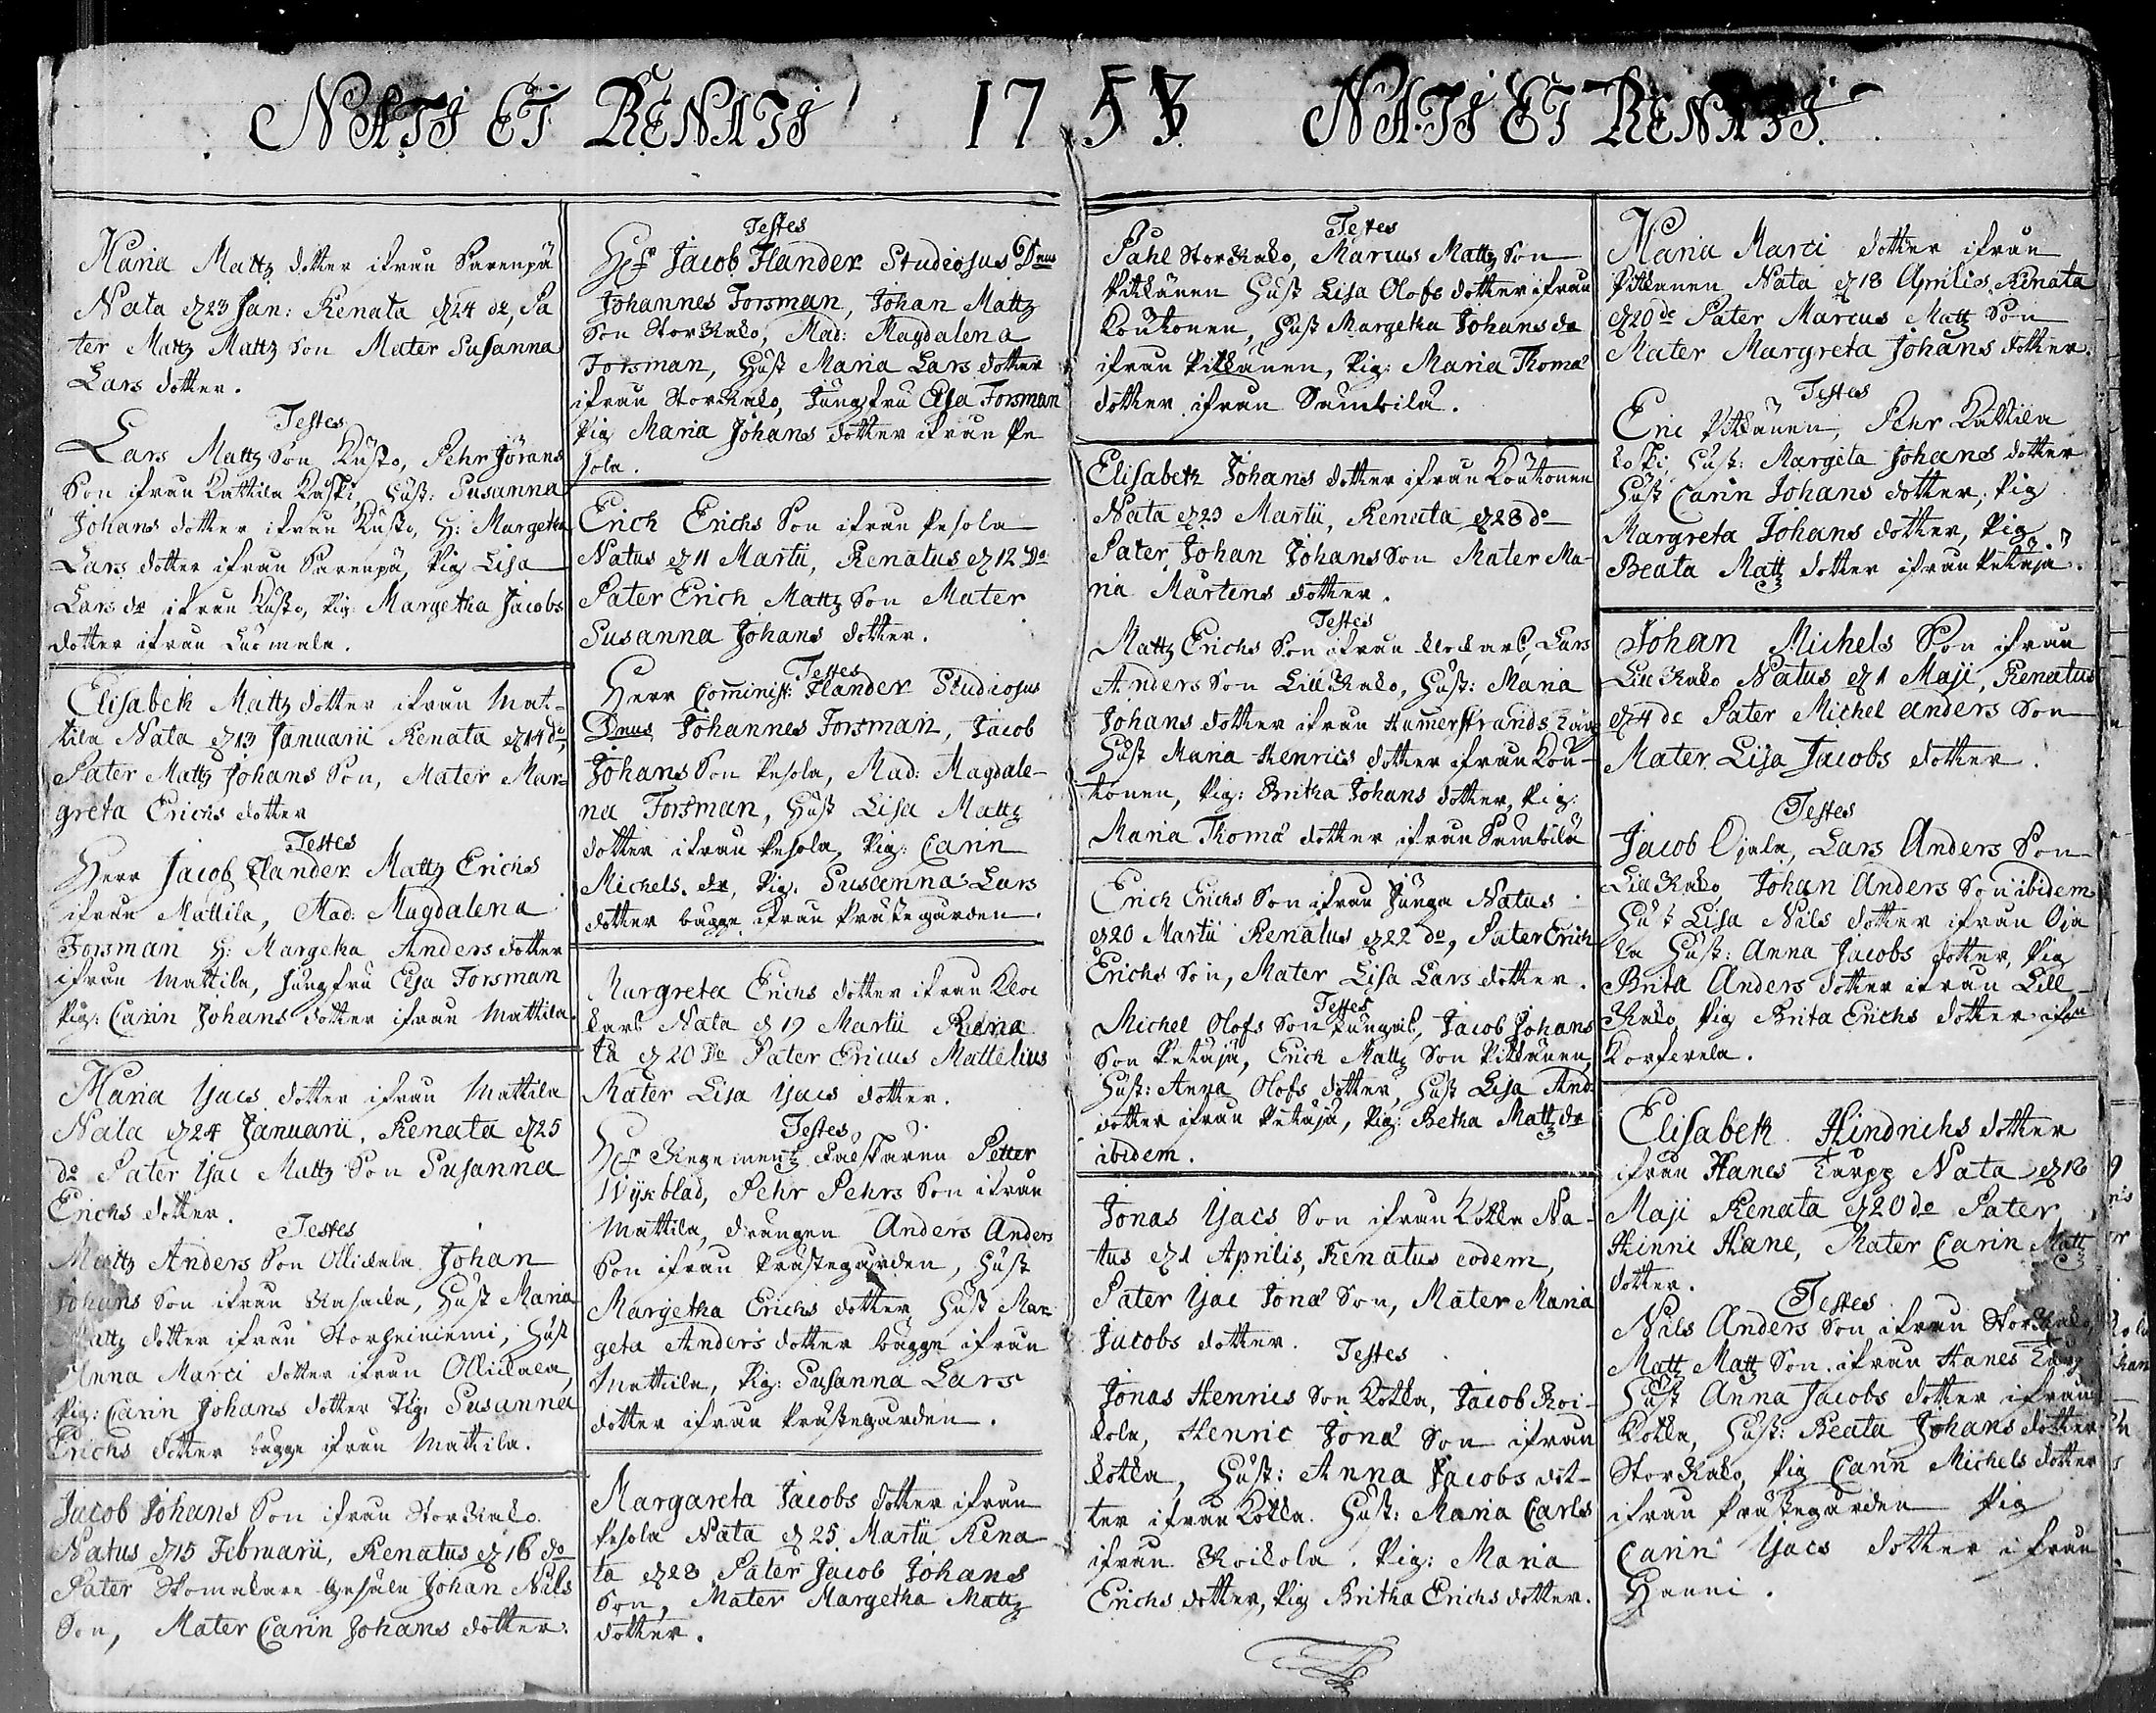 NATI ET RENATI 1753 NATI ET RENATI
Maria Mattz dotter ifrån Sarenpä
Nata d 23 Jan: Renata d 24 do, Pa
ter Mattz Mattz Son Mater Susanna
Lars dotter.
Testes
Lars Mattz Son Kusto, Pehr Jörans
Son ifrån Kattila Kåski, Hust: Susanna
Johans dotter ifrån Kusto, H: Margetha
Lars dotter ifrån Sarenpä, Pig Lisa
Lars dr ifrån Kusto, Pig: Margetha Jacobs
dotter ifrån Luomala.
Elisabeth Mattz dotter ifrån Mat-
tila Nata d 13 Januarii Renata d 14 do,
Pater Mattz Johans Son, Mater Mar-
greta Erichs dotter
Testes
Herr Jacob Flander Mattz Erichs
ifrån Mattila, Mad: Magdalena
Forsman H: Margetha Anders dotter
ifrån Mattila, Jungfru Elsa Forsman
Pig: Carin Johans dotter ifrån Mattila.
Maria Ysacs dotter ifrån Mattila
Nata d 24 Januarii, Renata d 25
do Pater Ysac Mattz Son Susanna
Erichs dotter.
Testes
Mattz Anders Son Ollickala Johan
Johans Son ifrån, Hust Maria
Mattz dotter ifrån Storheiniemi, Hust
Anna Marci dotter ifrån Ollickala,
Pig: Carin Johans dotter Pig: Susanna
Erichs dotter bägge ifrån Mattila.
Jacob Johans Son ifrån Storkalo.
Natus d 15 Februarii, Renatus d 16 do
Pater Skomakare Gesäln Johan Nils
Son, Mater Carin Johans dotter.
Testes
Hr Jacob Flander Studiosus Dnus
Johannes Forsman, Johan Mattz
Son Storkalo, Mad: Magdalena
Forsman, Hust Maria Lars dotter
ifrån Storkalo, Jungfru Elsa Forsman
Pig Maria Johans dotter ifrån Pe
sola.
Erich Erichs Son ifrån Pesola
Natus d 11 Martii, Renatus d 12 Do
Pater Erich Mattz Son Mater
Susanna Johans dotter.
Testes
Herr Cominist: Flander Studiosus
Dnus Johannes Forsman, Jacob
Johans Son Pesola, Mad: Magdale-
na Forsman, Hust Lisa Mattz
dotter ifrån Pesola, Pig: Carin
Michels dr, Pig. Susanna Lars
dotter bägge ifrån Prästegården.
Margreta Erichs dotter ifrån Kloc
kars Nata d 19 Martii Rena
ta d 20 Do Pater Ericus Mattelius
Mater Lisa Ysacs dotter.
Testes
Hr Regementz Fältskären Petter
Wijkblad, Pehr Pehrs Son ifrån
Mattila, drängen Anders Anders
Son ifrån Prästegården, Hust
Margetha Erichs dotter Hust Mar
geta Anders dotter bägge ifrån
Mattila, Pig: Susanna Lars
dotter ifrån Prästegården.
Margareta Jacobs dotter ifrån
Pesola Nata d 25 Martii Rena
ta d 28 Pater Jacob Johans
Son, Mater Margetha Mattz
dotter.
Testes
Påhl Storkalo, Marcus Mattz Son
Pitkänen Hust Lisa Olofs dotter ifrån
Koukonen, Hust Margetha Johans dr
ifrån Pitkänen, Pig: Maria Thomæ
dotter ifrån Sambila.
Elisabeth Johans dotter ifrån Koukonen
Nata d 23 Martii, Renata d 28 do
Pater Johan Johans Son Mater Ma-
ria Mårtens dotter.
Testes
Mattz Erichs Son ifrån Klockars, Lars
Anders Son Lillkalo, Hust: Maria
Johans dotter ifrån Hamerstrands
Hust Maria Henrics dotter ifrån Kou-
konen, Pig: Britha Johans dotter, Pig:
Maria Thomæ dotter ifrån Sambila
Erich Erichs Son ifrån Junga Natus
d 20 Martii Renatus d 22 do, Pater Erich
Erichs Son, Mater Lisa Lars dotter.
Testes
Michel Olofs Son, Jacob Johans
Son Petäjä, Erich Mattz Son Pitkänen,
Hust: Anna Olofs dotter, Hust Lisa And
dotter ifrån Petäjä, Pig: Betha Mattz dr
ibidem.
Jonas Ysacs Son ifrån Kotka Na-
tus d 1 Aprilis, Renatus eodem,
Pater Ysac Jonæ Son, Mater Maria
Jacobs dotter.
Testes
Jonas Henrics Son Kotka, Jacob Roi-
kola, Henric Jonæ Son ifrån
Kotka, Hust: Anna Jacobs dot-
ter ifrån Kotka. Hust: Maria Carls
ifrån Roikola. Pig: Maria
Erichs dotter, Pig Britha Erichs dotter.
Maria Marci dotter ifrån
Pitkänen Nata d 18 Aprilis, Renata
d 20 do Pater Marcus Mattz Son
Mater Margreta Johans dotter.
Testes
Eric Pitkänen, Pehr Kattila
koski, Hust: Margeta Johans dotter
Hust Carin Johans dotter, Pig
Margreta Johans dotter, Pig
Beata Mattz dotter ifrån Petäjä.
Johan Michels Son ifrån
Lillkalo Natus d 1 Maji, Renatus
d 4 do Pater Michel Anders Son
Mater Lisa Jacobs dotter.
Testes
Jacob Ojala, Lars Anders Son
Lillkalo, Johan Anders Son ibidem
Hust Lisa Nils dotter ifrån Oja
la Hust: Anna Jacobs dotter, Pig
Brita Anders dotter ifrån Lill-
kalo, Pig Brita Erichs dotter ifrån
Korfvela.
Elisabeth Hindrichs dotter
ifrån Hanes Torpp Nata d 18
Maji Renata d 20 do Pater
Hinric Hane, Mater Carin Matt
dotter.
Testes
Nils Anders Son ifrån Storkalo,
Matt Matt Son ifrån Hanes Torp
Hust Anna Jacobs dotter ifrån
Kotka, Hust: Beata Johans dotter
Storkalo, Pig Carin Michels dotter
ifrån Prästegården Pig
Carin Ysacs dotter ifrån
Hanni.